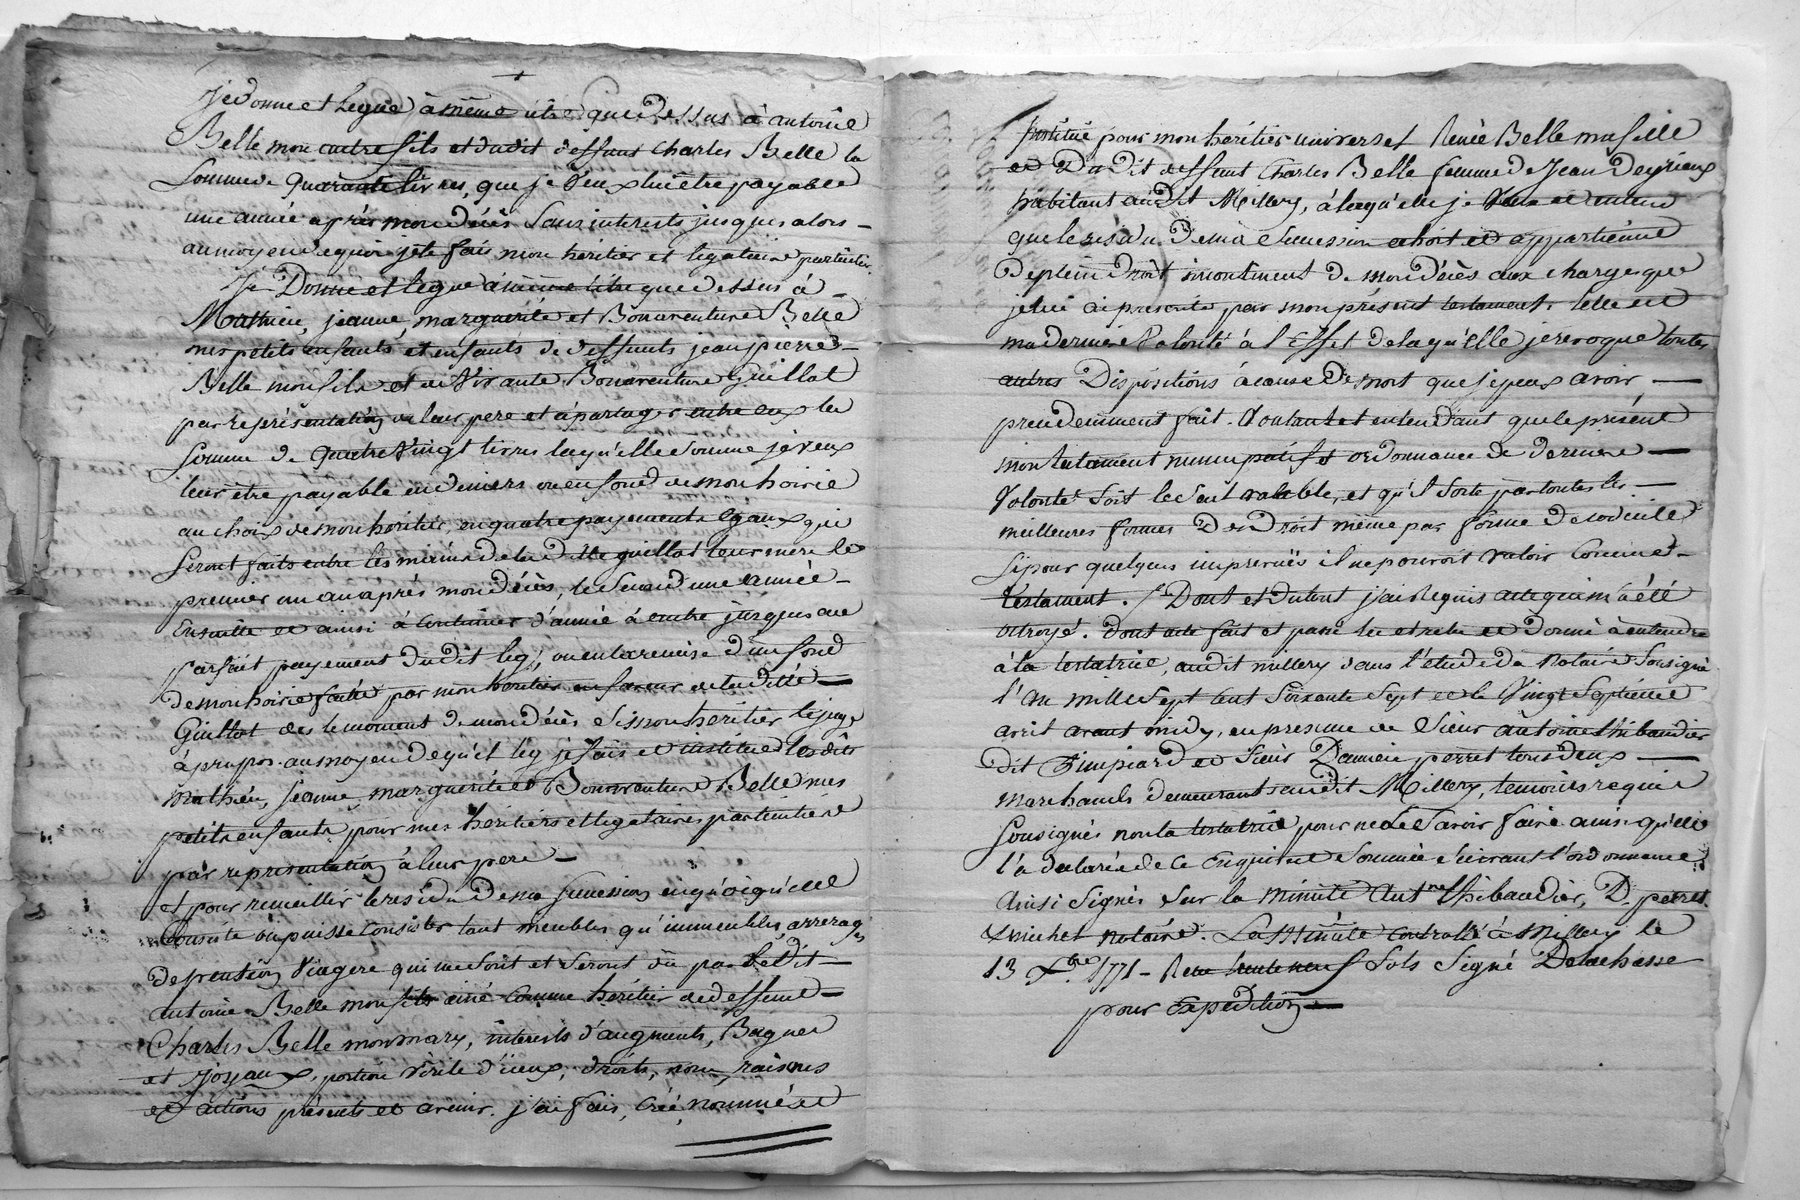 Je donne et legue à même titre que dessus à antoine
Belle mon autre fils et dudit deffunt Charles Belle la
Somme de quarante livres, que je veux lui être payable
une année après mon décès sans interests jusques alors -
au moyen de quoi je le fais mon héritier et légataire particulier.
Je Donne et legue à même titre que dessus à -
Mathieu, jeanne, marguerite et Bonaventure Belle
mes petits enfants et enfants de deffunts jean pierre -
Belle mon fils et de vivante Bonaventure Guillot
par représentation de leur pere et à partager entre eux la
Somme de quatre Vingt livres laquelle somme je veux
leur être payable en deniers ou en fond de mon hoirie
au choix de mon héritier, en quatre payements égaux qui
seront faits entre les mains de lad. tte guillot leur mere le
premier un an après mon décès, le second une année -
Ensuitte et ainsi à continuer d'année à autre jusques au
parfait payement dudit leg, ou en la remise d'un fond
de mon hoirie faite par mon héritier en faveur de laditte -
Guillot dès le moment de mon décès si mon héritier le juge
à propos. au moyen de quel leg je fais et institue lesdits
mathieu, jeanne, marguerite et Bonaventure Belle mes
petits enfants pour mes héritiers et légataires particuliers
par représentation à leur pere -
et pour recueillir le residu de ma succession en quoi qu'elle
Consiste ou puisse consister tant meubles qu'immeubles, arrerages
de pension Viagere qui me sont et seront dû par ledit -
antoine Belle mon fils ainé comme héritier de deffunt -
Charles Belle mon mary, interests d'augments, Bagues
et Joyaux, portion virile d'iceux, droits, noms, raisons
et actions présents et avenir. j'ai fais, créé, nommé et
Institué pour mon héritier universel Renée Belle ma fille
et dudit deffunt Charles Belle femme de Jean Deyrieux
habitant audit Millery, à laquelle je veux et entend
que le residu de ma Succession echoit et appartienne
de plein droit incontinent de mon décès aux charges que
je lui ai présenté par mon présent testament. telle est
ma derniere Volonté à l'Effet de laquelle je revoque toutes
autres Dispositions à cause de mort que je peux avoir -
précedemment fait. Voulant et entendant que le présent
mon testament nuncupatif et ordonnance de derniere -
Volonté soit le seul valable, et qu'il sorte par toutes les -
meilleures formes de droit même par forme de codicile
si pour quelques imprevües il ne pouvoit valoir comme -
testament. / Dont et du tout j'ai requis acte qui m'a été
octroyé. dont acte fait et passé lu et relu et donné à entendre
à la testatrice, audit millery dans l'étude du Notaire Soussigné
l'an mille sept cent soixante sept et le Vingt Septieme
avril avant midy, en présence de Sieur antoine thibaudier
dit Simpiard et Sieur Damien perret tous deux -
marchands demeurants audit Millery, temoins requis
soussignés non la testatrice pour ne le savoir faire ainsi qu'elle
l'a déclaré de ce Enquise et sommée suivant l'ordonnance
Ainsi Signés sur la minute Ant.ne thibaudier, D. perret.
& michet notaire. La Minute controllé à Millery le
13 Xbre 1771 - Reçu trente neuf Sols Signé Delachasse
pour Expédition -